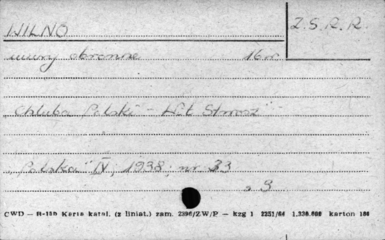 WILNO
Z.S.R.R.
mury obronne 16 w.
"Chluba Polski - Wit Stwosz"
"Polska" IV, 1938, nr 33
s 9
CWD — B-12b Karta katal. (z liniat.) zam. 2396/ZW/P — kzg 1 2251/64 1.330.000 karton 180